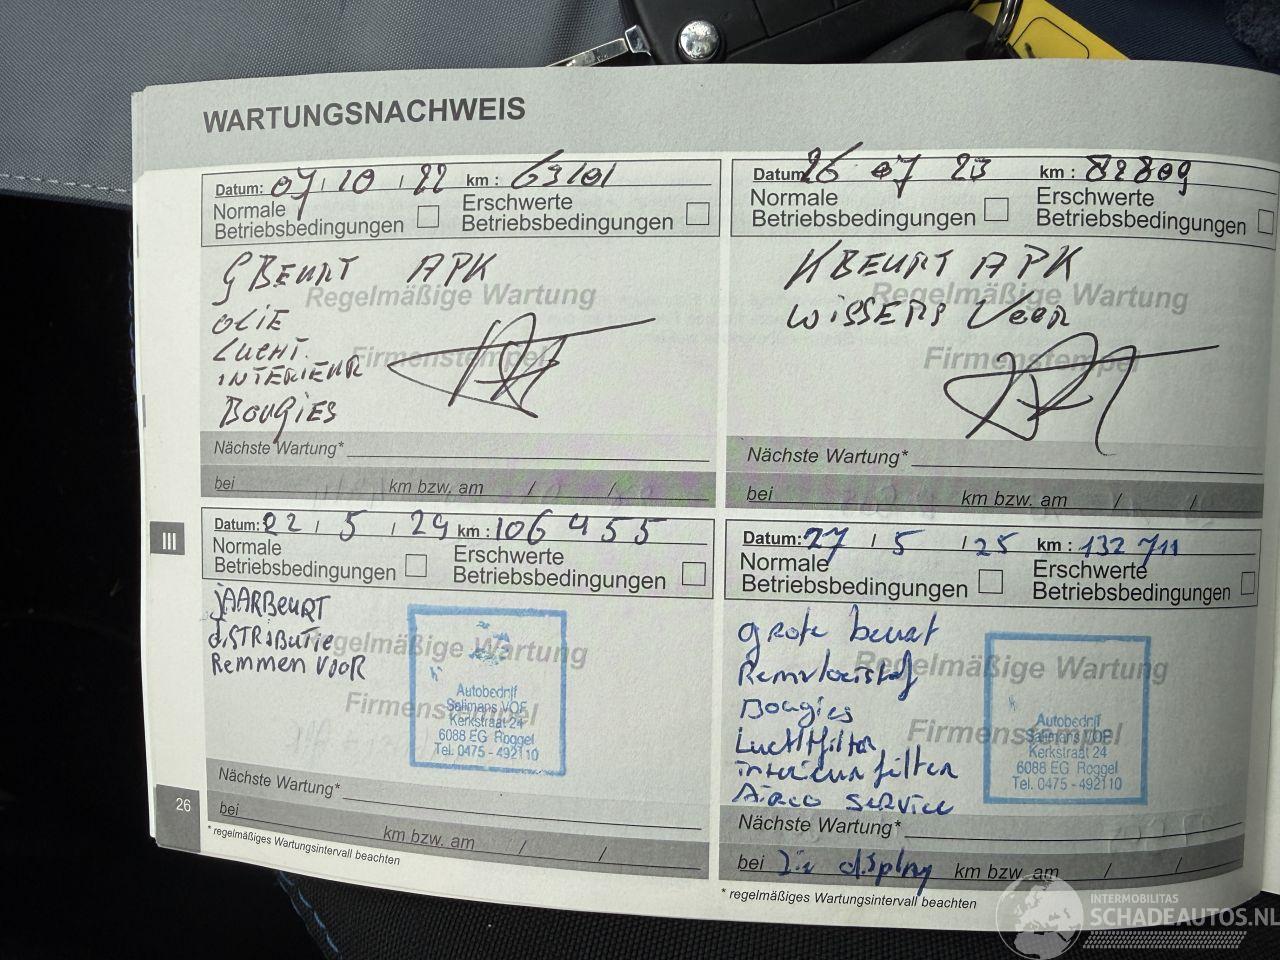 WARTUNGSNACHWEIS
Datum: 07 / 10 / 22 km : 63101
Normale Betriebsbedingungen
Erschwerte Betriebsbedingungen
G BEURT APK
Regelmäßige Wartung
OLIE
LUCHT
Firmenstempel
INTERIEUR
BOUGIES
Nächste Wartung*
bei km bzw. am / /
Datum: 26 07 23 km : 82809
Normale Betriebsbedingungen
Erschwerte Betriebsbedingungen
K BEURT APK
Regelmäßige Wartung
WISSERS VOOR
Firmenstempel
Nächste Wartung*
bei km bzw. am / /
III
Datum: 22 / 5 / 24 km : 106 455
Normale Betriebsbedingungen
Erschwerte Betriebsbedingungen
JAARBEURT
DISTRIBUTIE
Regelmäßige Wartung
Remmen VOOR
Firmenstempel
Autobedrijf
Salimans VOF
Kerkstraat 24
6088 EG Roggel
Tel. 0475 - 492110
Nächste Wartung*
bei km bzw. am / /
* regelmäßiges Wartungsintervall beachten
26
Datum: 27 / 5 / 25 km : 132 711
Normale Betriebsbedingungen
Erschwerte Betriebsbedingungen
grote beurt
Regelmäßige Wartung
Remvloeistof
Bougies
Firmenstempel
Luchtfilter
interieur filter
Airco service
Autobedrijf
Salimans VOF
Kerkstraat 24
6088 EG Roggel
Tel. 0475 - 492110
Nächste Wartung*
bei Zie display km bzw. am / /
* regelmäßiges Wartungsintervall beachten
INTERMOBILITAS
SCHADEAUTOS.NL